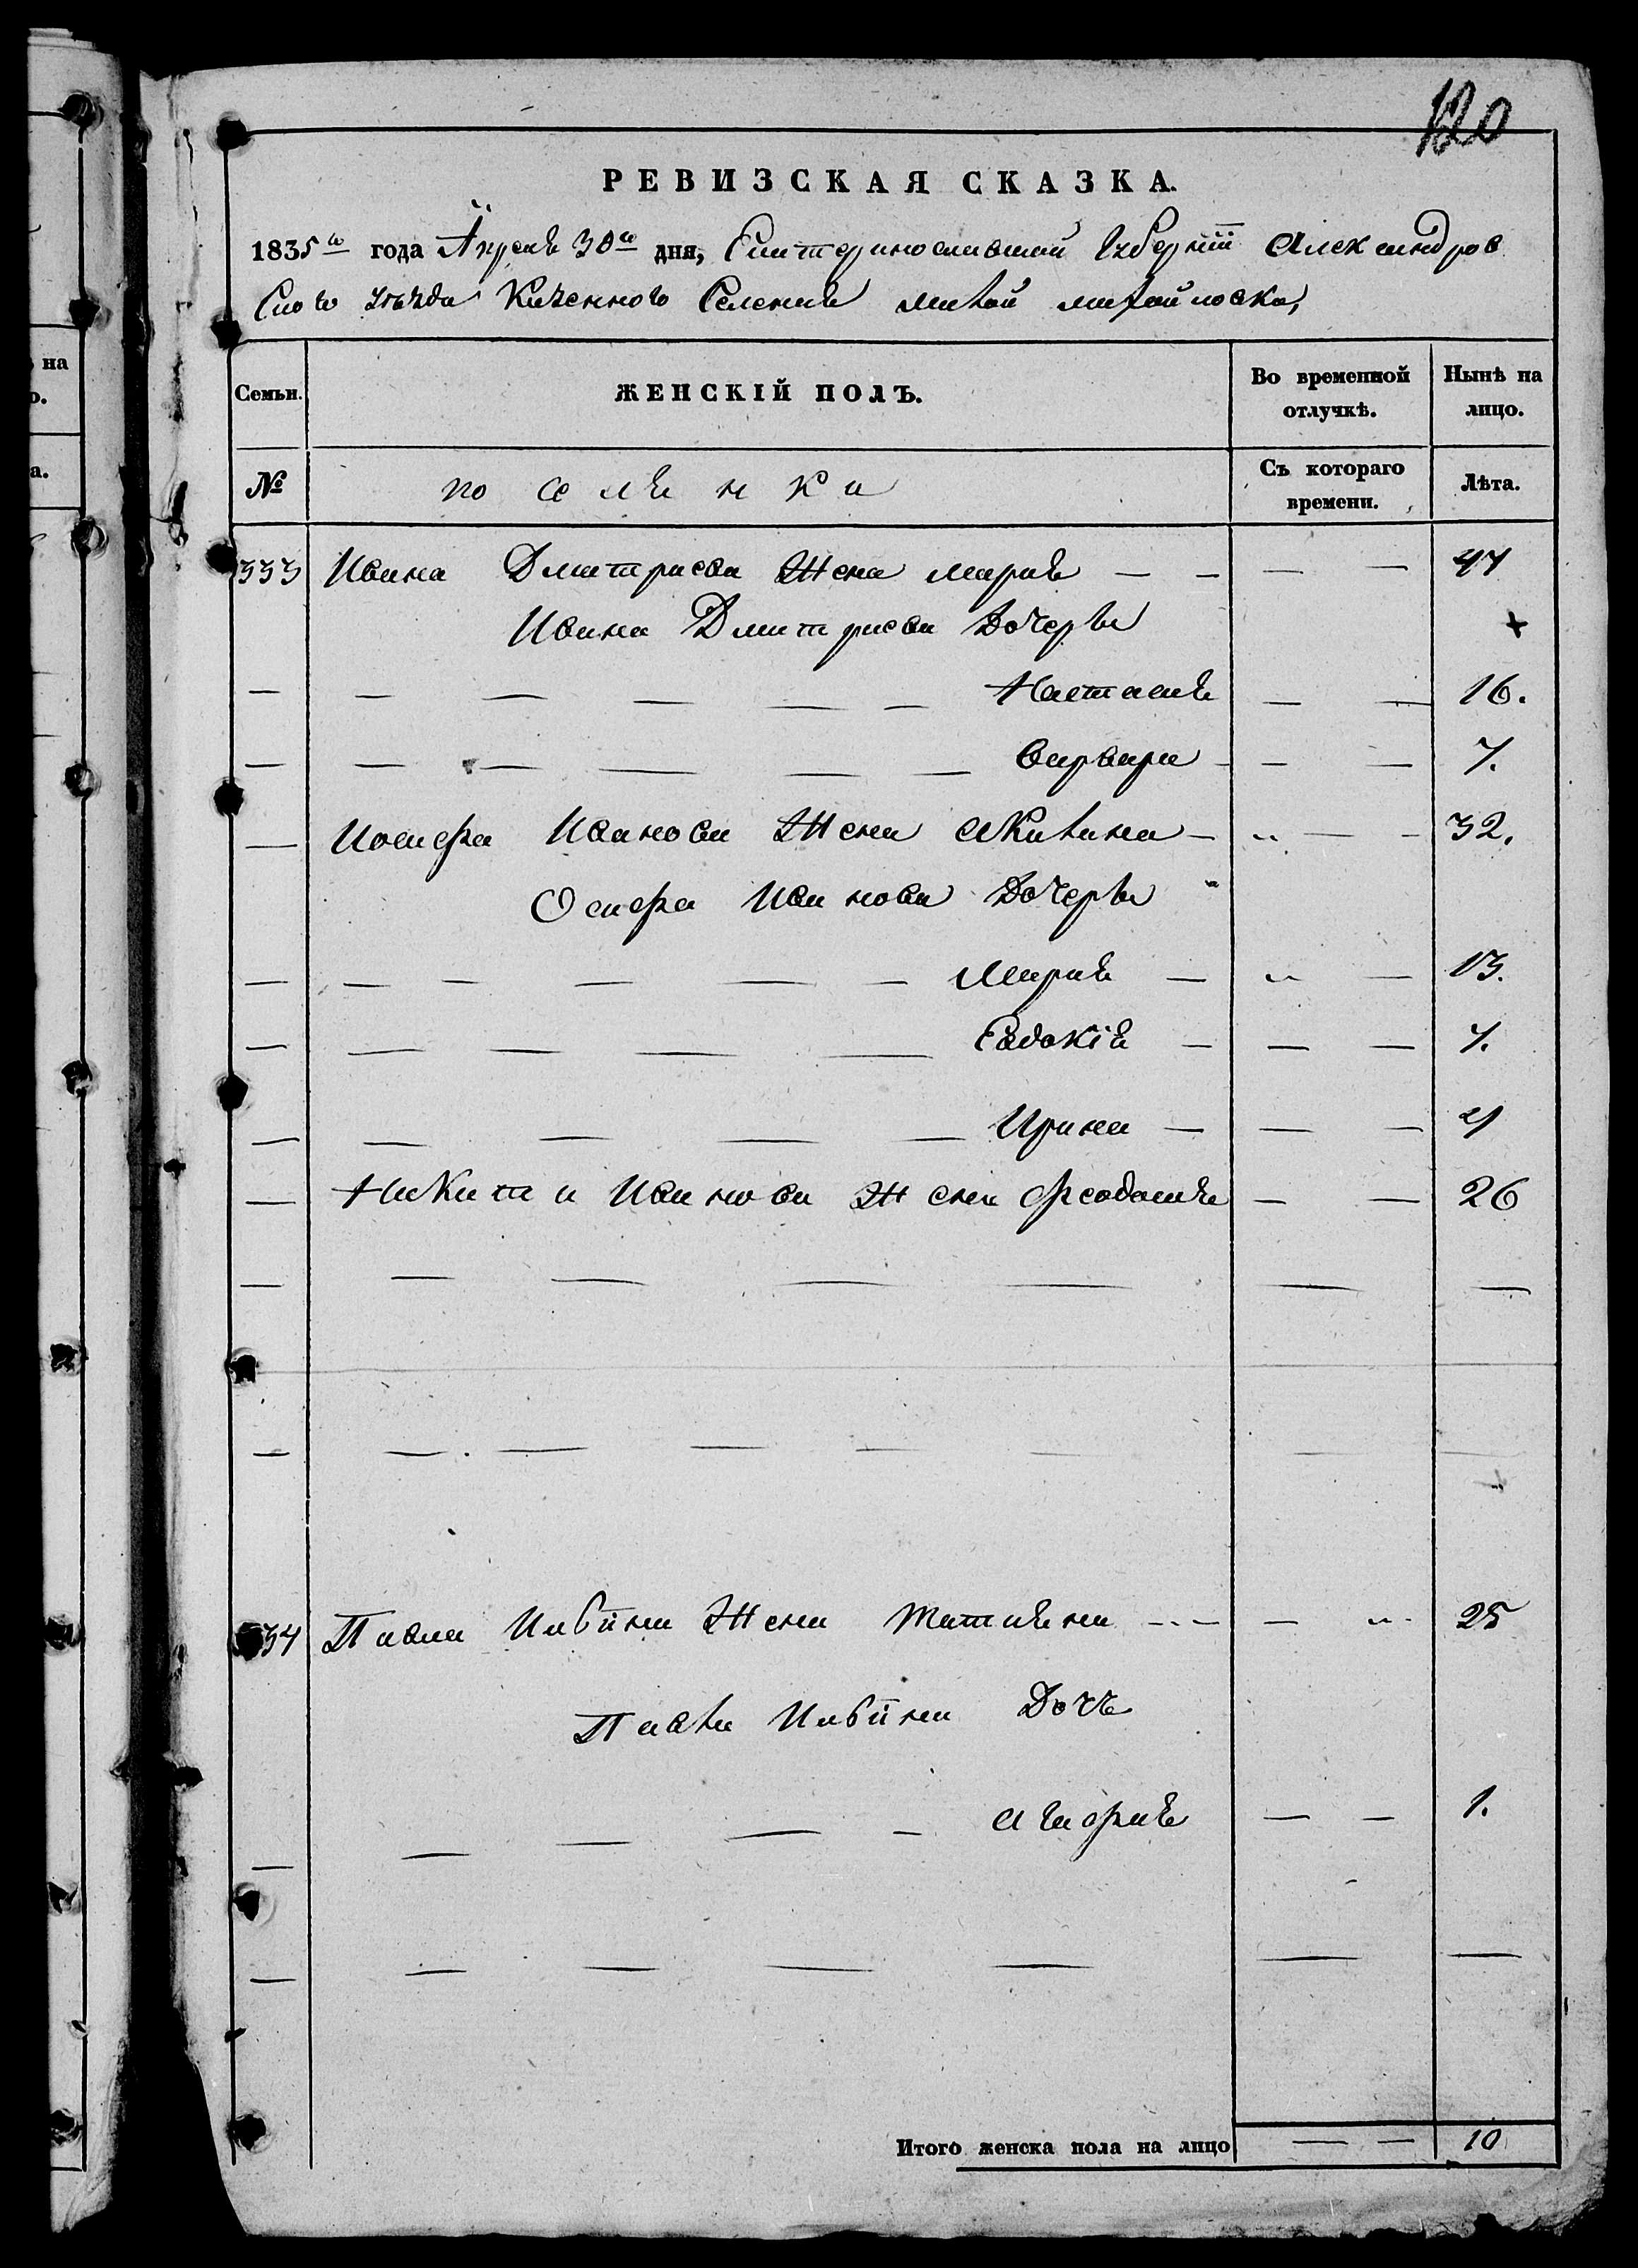 120
РЕВИЗСКАЯ СКАЗКА.
1835го года Апреля 30го дня, Екатеринославской Губернїи Александров
Ского уѣзда Казенного Селения малой михайловки,
на
о.
а.
Семьи. ЖЕНСКІЙ ПОЛЪ. Во временной отлучкѣ. Нынѣ на лицо.
№ поселянка Съ котораго времени. Лѣта.
333 Ивана Дмитриева Жена мария — — — — 47
Ивана Дмитриева Дочерьи +
— — — — — — Настасия — — 16.
— — — — — — варвара — — — 7.
— Иосифа Иванова Жена акилина — — — 32.
Осифа Иванова Дочерьи
— — — — — — Мария — — — 13.
— — — — — Евдокїя — — — 7.
— — — — — Ирина — — — 4
— Никити Иванова Жена феодосия — — 26
— — — — — — —
— — — — — — — —
334 Павла Шабїина Жена татияна — — — 25
Павла Шабїина Дочь
— — — — — агафия — — 1.
— — — — — — —
Итого женска пола на лицо — — 10